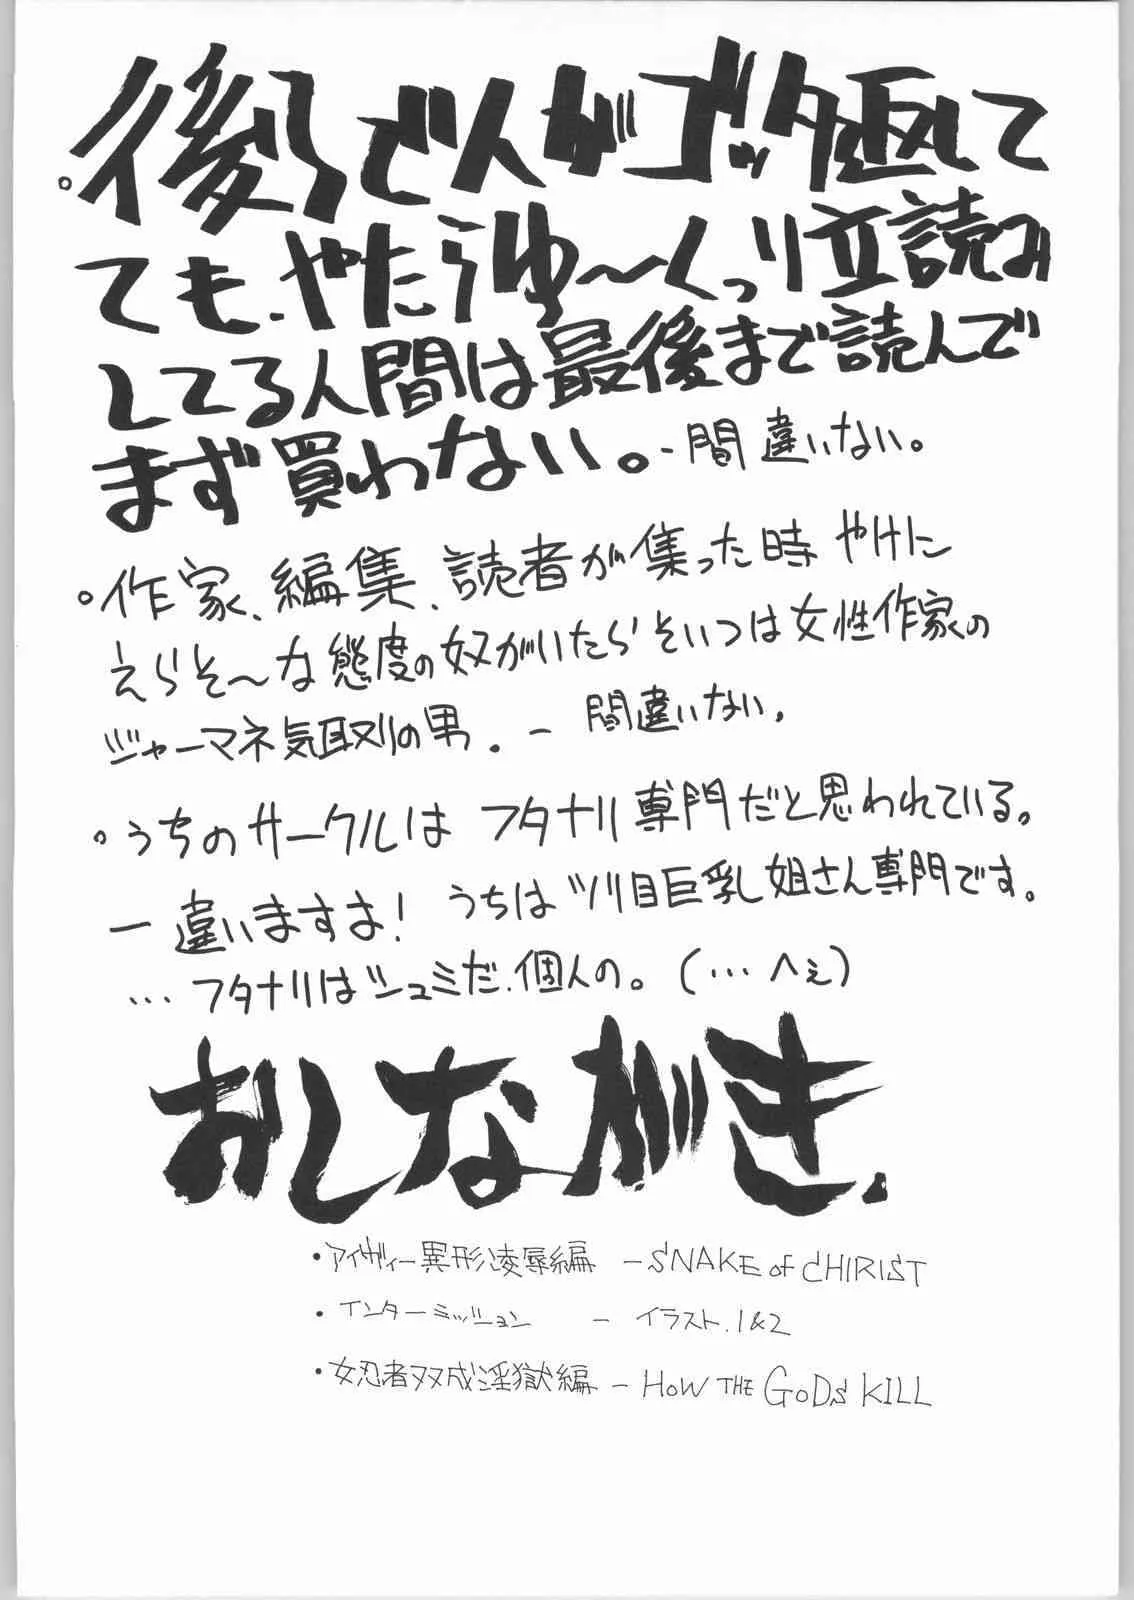 。後ろで人がゴッタ返して
ても、やたらゆ〜くっり立読み
してる人間は最後まで読んで
まず買わない。-間違いない。
。作家、編集、読者が集った時やけに
えらそ〜な態度の奴がいたらそいつは女性作家の
ジャーマネ気取りの男。- 間違いない。
。うちのサークルは フタナリ専門だと思われている。
ー違いますよ! うちはツリ目巨乳姐さん専門です。
…フタナリはシュミだ、個人の。(…へぇ)
おしながき.
・アイヴィー異形凌辱編 - SNAKE of CHIRIST
・インターミッション - イラスト.1&2
・女忍者双成淫獄編 - HOW THE GODS KILL